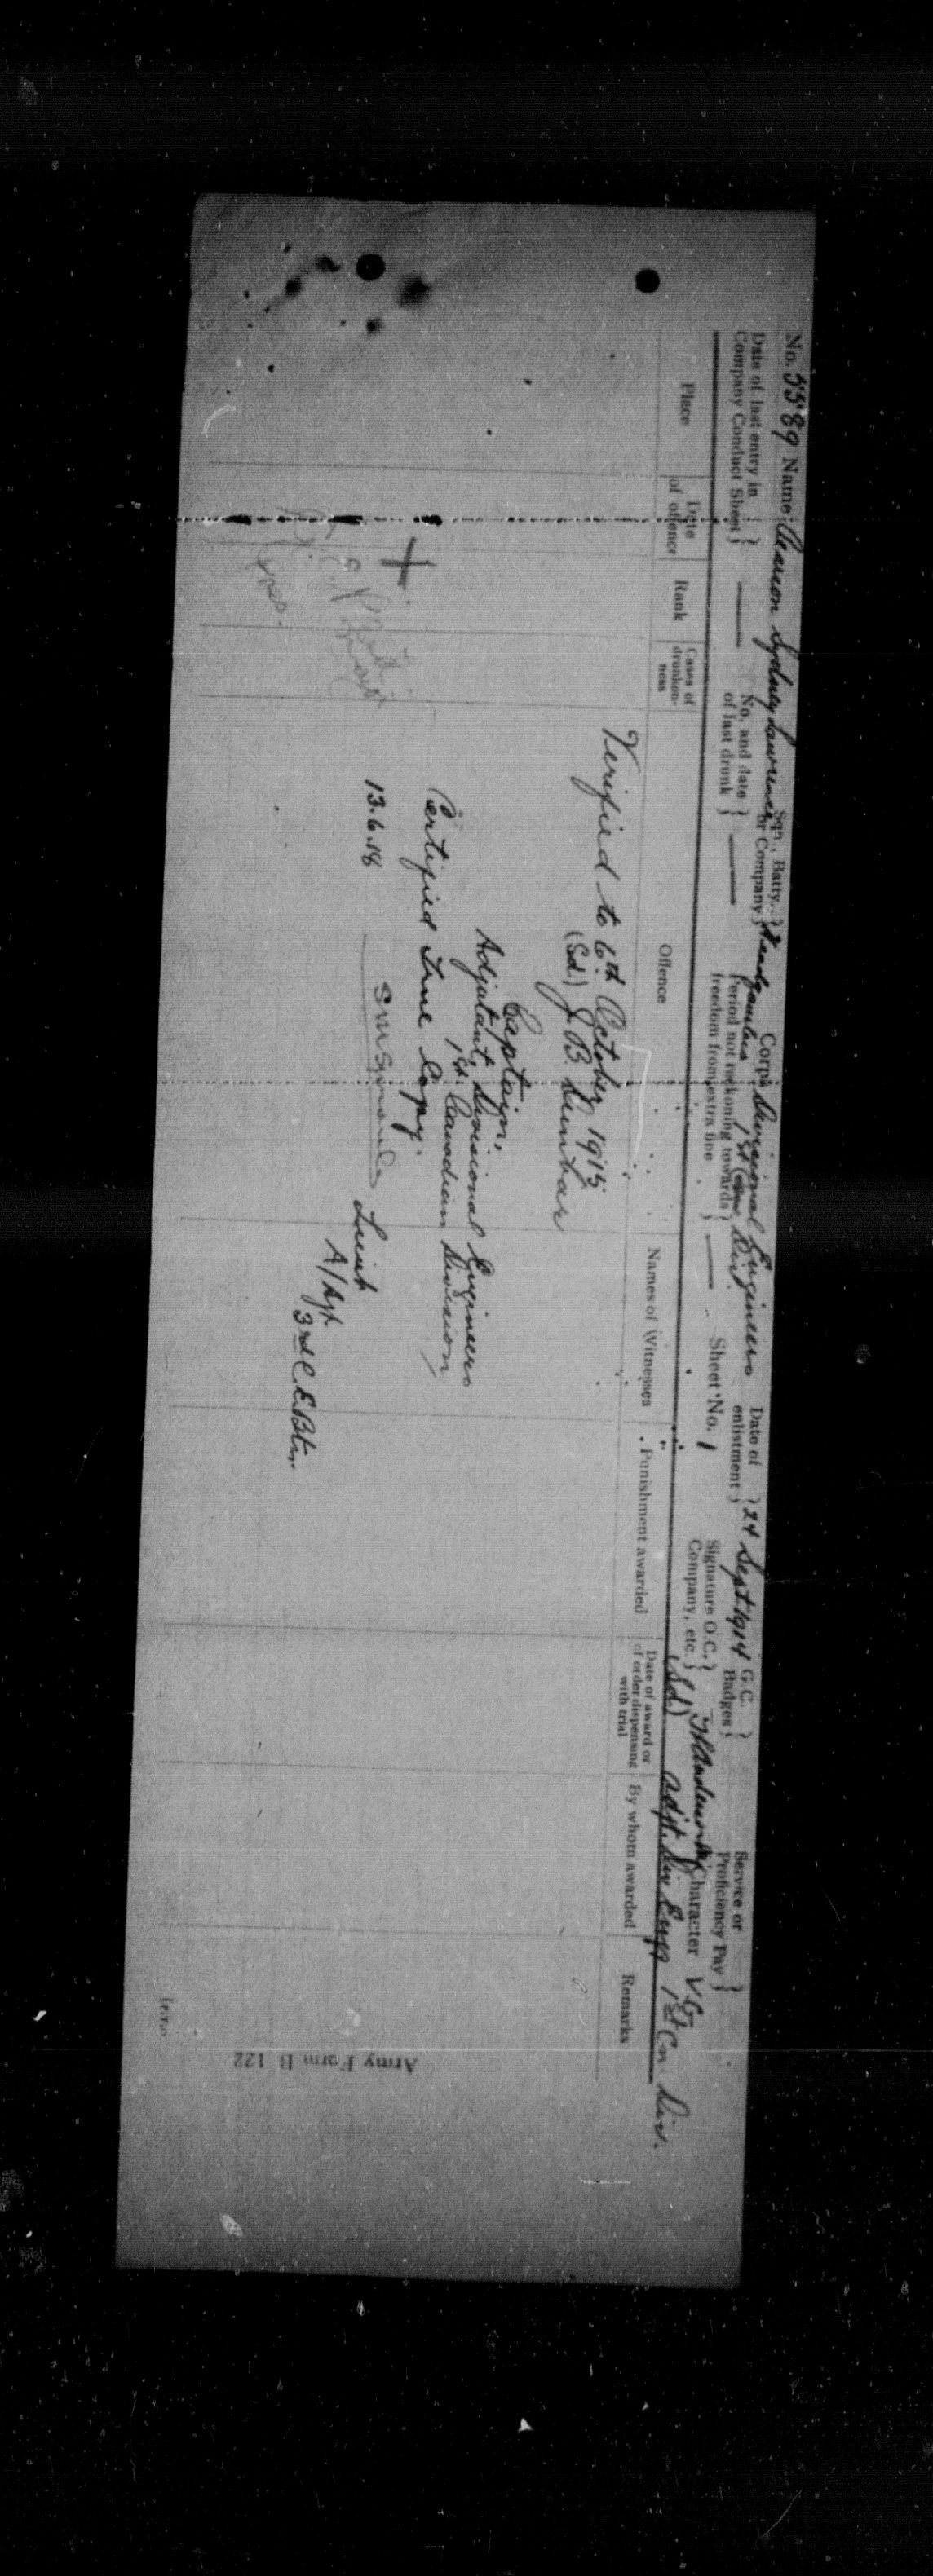 No. 5589 Name Sydney Lawrence Sqn., Batty., or Company } Headquarters Corps Divisional Engineers 1st Can Div. Date of enlistment } 24 Sept 1914 G.C. Badges } Service or Proficiency Pay }
Date of last entry in Company Conduct Sheet } — No. and date of last drunk } — Period not reckoning towards freedom from extra fine } — Sheet No. 1 Signature O.C. Company, etc. } Character V.G.
(Sd.) Adjt. Div Engrs 1st Can Div.
Place Date of offence Rank Cases of drunkenness Offence Names of Witnesses Punishment awarded Date of award or of order dispensing with trial By whom awarded Remarks
Verified to 6th October 1915
(Sd.) J B Dunbar
Captain,
Adjutant, Divisional Engineers
1st Canadian Division
Certified True Copy.
13.6.18 Lieut
A/Adjt
3rd C.E. Btn.
[P.T.O.
Army Form B 122